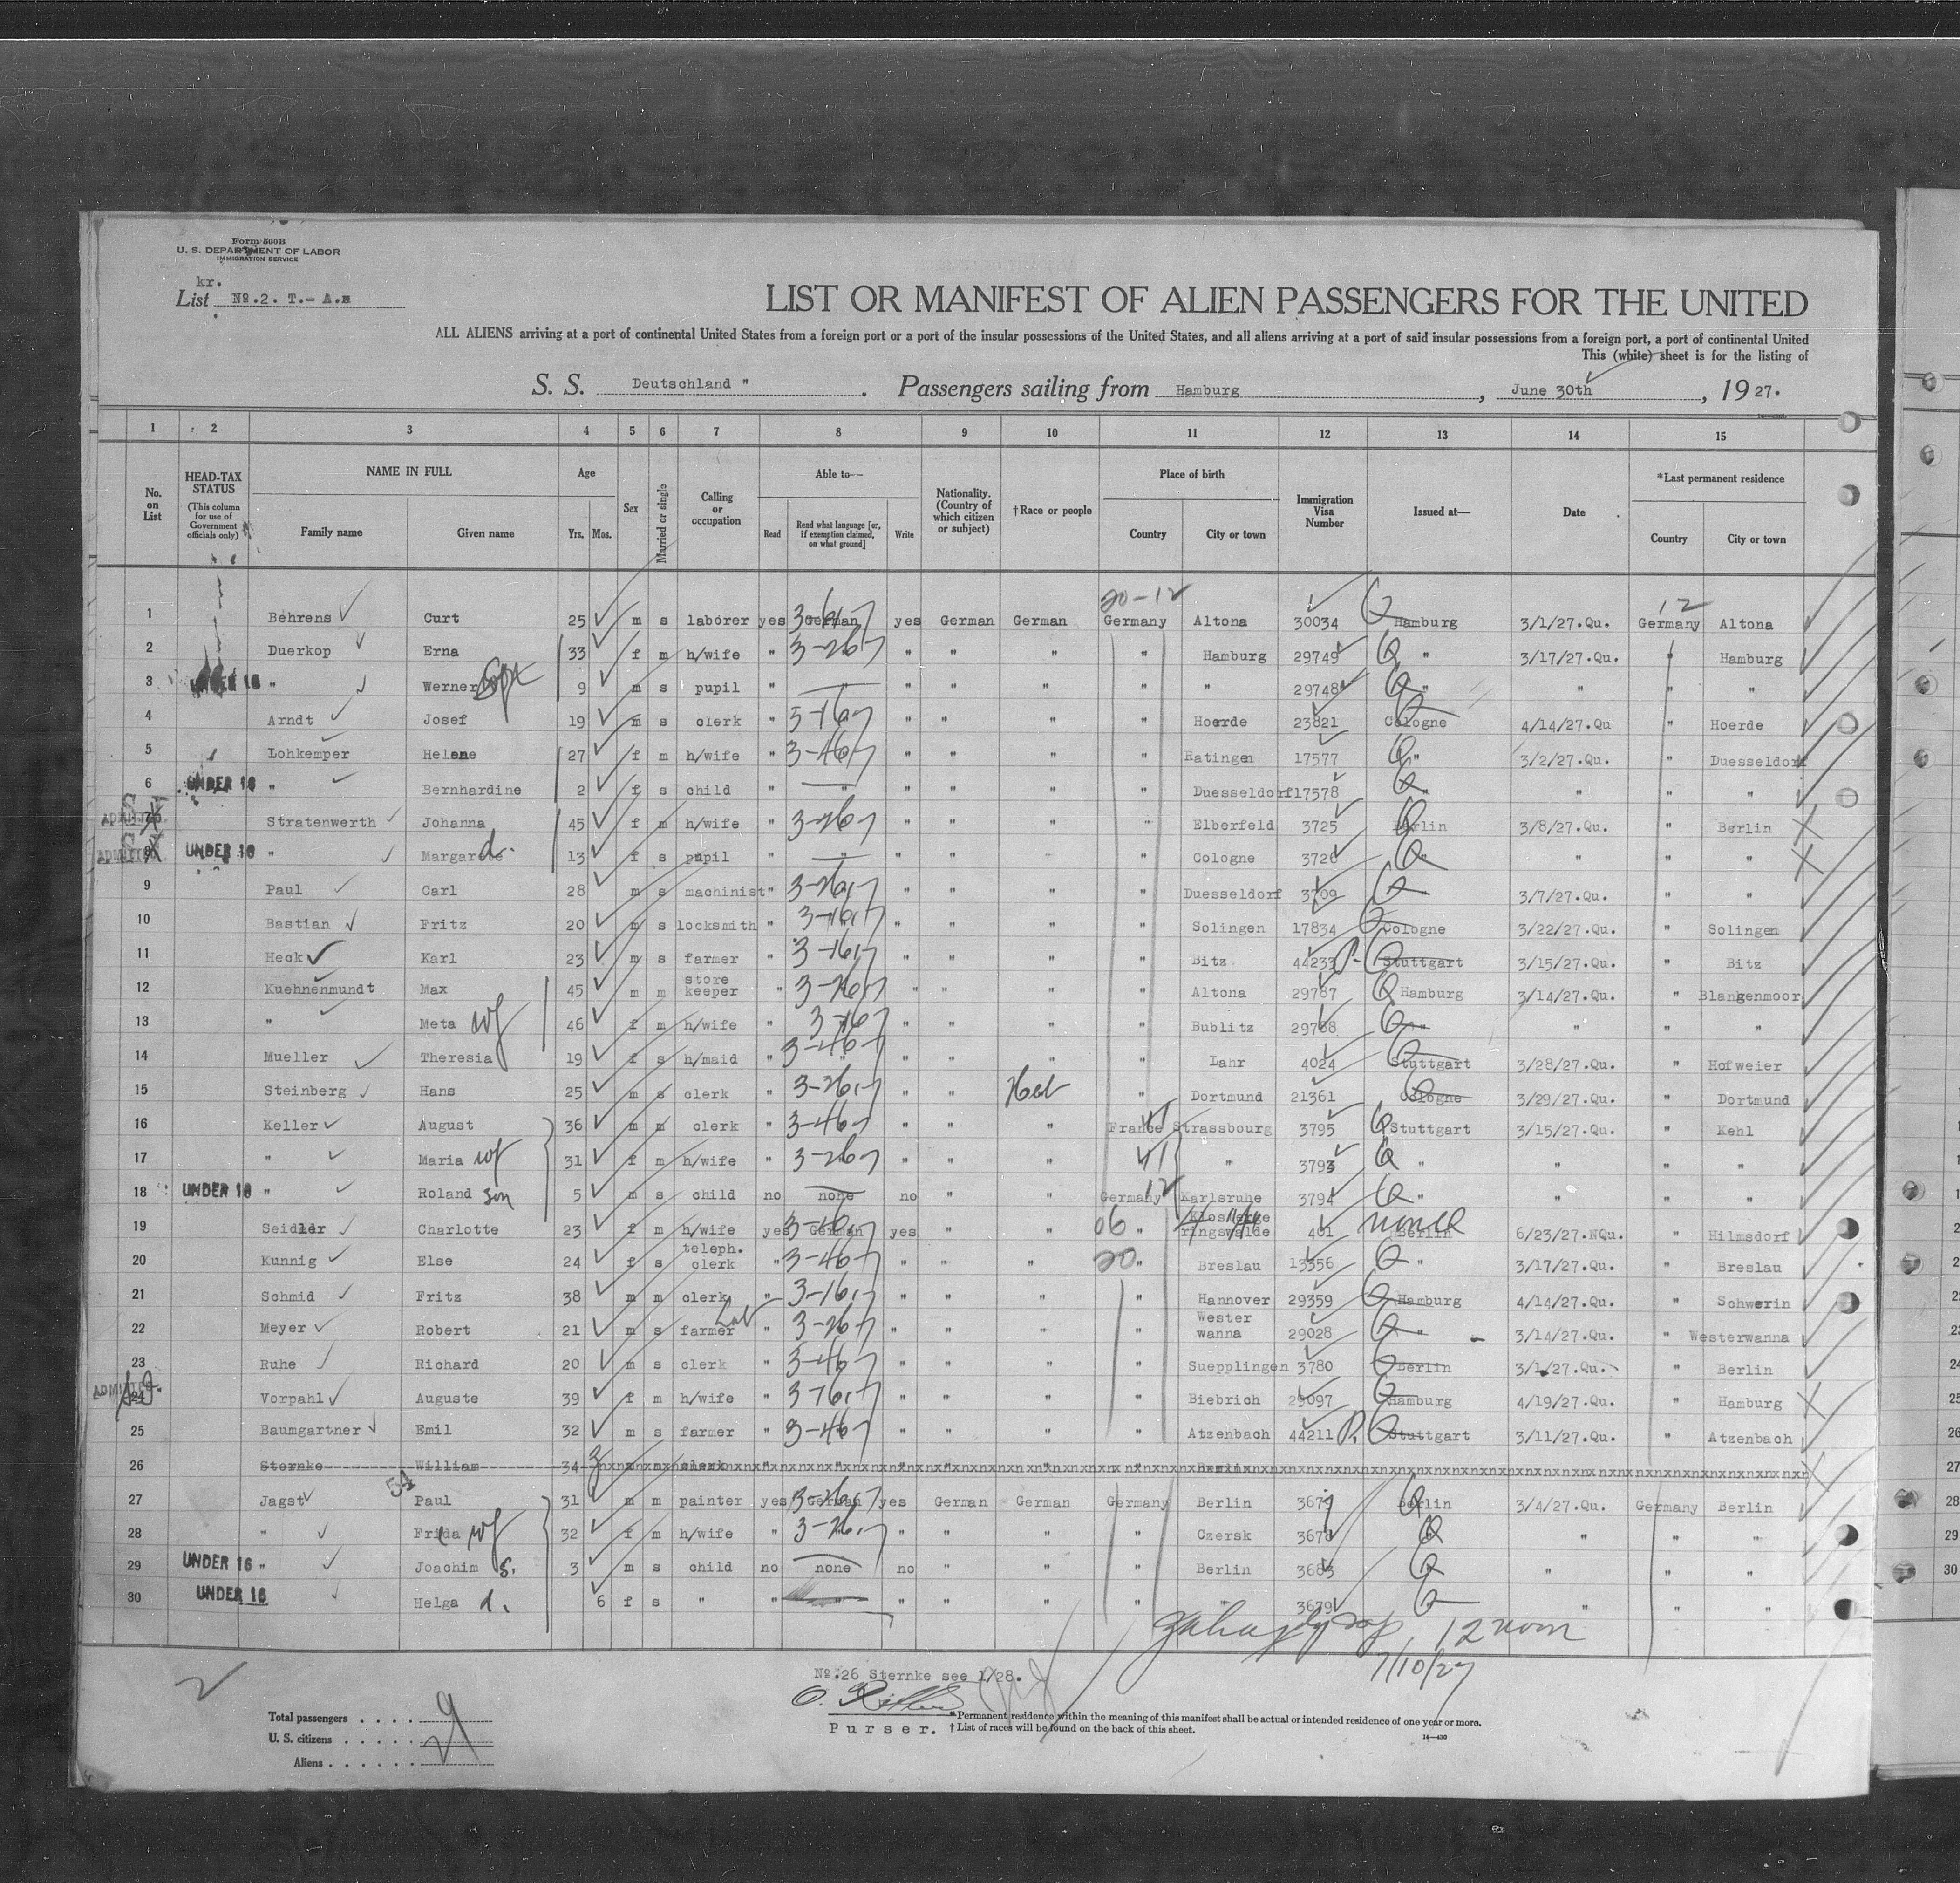 Form 500B
U. S. DEPARTMENT OF LABOR
IMMIGRATION SERVICE
kr.
List No.2. T.- A.
LIST OR MANIFEST OF ALIEN PASSENGERS FOR THE UNITED
ALL ALIENS arriving at a port of continental United States from a foreign port or a port of the insular possessions of the United States, and all aliens arriving at a port of said insular possessions from a foreign port, a port of continental United
This (white) sheet is for the listing of
S. S. Deutschland " . Passengers sailing from Hamburg , June 30th , 1927.
1 2 3 4 5 6 7 8 9 10 11 12 13 14 15
No. on List HEAD-TAX STATUS (This column for use of Government officials only) NAME IN FULL Family name Given name Age Yrs. Mos. Sex Married or single Calling or occupation Able to— Read Read what language [or, if exemption claimed, on what ground] Write Nationality. (Country of which citizen or subject) †Race or people Place of birth Country City or town Immigration Visa Number Issued at— Date *Last permanent residence Country City or town
20-12 12
1 Behrens Curt 25 m s laborer yes German yes German German Germany Altona 30034 Hamburg 3/1/27.Qu. Germany Altona
2 Duerkop Erna 33 f m h/wife " 3-26-7 " " " " Hamburg 29749 Q " 3/17/27.Qu. " Hamburg
3 UNDER 16 " Werner 9 m s pupil " " " " " " 29748 Q " " " "
4 Arndt Josef 19 m s clerk " " " " " Hoerde 23821 Cologne 4/14/27.Qu " Hoerde
5 Lohkemper Helene 27 f m h/wife " 3-46-7 " " " " Ratingen 17577 Q " 3/2/27.Qu. " Duesseldorf
6 UNDER 16 " Bernhardine 2 f s child " " " " " " Duesseldorf 17578 Q " " " "
ADMITTED 7 Stratenwerth Johanna 45 f m h/wife " 3-26-7 " " " " Elberfeld 3725 Berlin 3/8/27.Qu. " Berlin X
ADMITTED 8 UNDER 16 " Margarete d. 13 f s pupil " " " " " " Cologne 3726 Q " " " " X
9 Paul Carl 28 m s machinist " 3-26-7 " " " " Duesseldorf 3709 Q 3/7/27.Qu. " "
10 Bastian Fritz 20 m s locksmith " 3-16-7 " " " " Solingen 17834 Cologne 3/22/27.Qu. " Solingen
11 Heck Karl 23 m s farmer " 3-16-7 " " " " Bitz 44233 P- Stuttgart 3/15/27.Qu. " Bitz
12 Kuehnenmundt Max 45 m m store keeper " 3-26-7 " " " " Altona 29787 Q Hamburg 3/14/27.Qu. " Blangenmoor
13 " Meta wf 46 f m h/wife " 3-16-7 " " " " Bublitz 29788 Q " " " "
14 Mueller Theresia 19 f s h/maid " 3-46-7 " " " " Lahr 4024 Stuttgart 3/28/27.Qu. " Hofweier
15 Steinberg Hans 25 m s clerk " 3-26-7 " " Heb " Dortmund 21361 Cologne 3/29/27.Qu. " Dortmund
16 Keller August 36 m m clerk " 3-46-7 " " " France Strassbourg 3795 Q Stuttgart 3/15/27.Qu. " Kehl
17 " Maria wf 31 f m h/wife " 3-26-7 " " " " 3793 Q " " " "
18 UNDER 16 " Roland son 5 m s child no none no " " Germany 12 Karlsruhe 3794 Q " " " "
19 Seidler Charlotte 23 f m h/wife yes German yes " " 06 " Klosterge ringswalde 461 Berlin 6/23/27.NQu. " Hilmsdorf
20 Kunnig Else 24 f s teleph. clerk " 3-46-7 " " " 20 " Breslau 13356 Q " 3/17/27.Qu. " Breslau
21 Schmid Fritz 38 m m clerk " 3-16-7 " " " " Hannover 29359 Hamburg 4/14/27.Qu. " Schwerin
22 Meyer Robert 21 m s farmer " 3-26-7 " " " " Wester wanna 29028 Q " 3/14/27.Qu. " Westerwanna
23 Ruhe Richard 20 m s clerk " 3-46-7 " " " " Suepplingen 3780 Berlin 3/1/27.Qu. " Berlin
ADMITTED 24 Vorpahl Auguste 39 f m h/wife " 3-16-7 " " " " Biebrich 29097 Hamburg 4/19/27.Qu. " Hamburg X
25 Baumgartner Emil 32 m s farmer " 3-46-7 " " " " Atzenbach 44211 P. Stuttgart 3/11/27.Qu. " Atzenbach
26 Sternke William 34 m m clerk " " " " " " Berlin
27 Jagst 54 Paul 31 m m painter yes German yes German German Germany Berlin 3677 Berlin 3/4/27.Qu. Germany Berlin
28 " Frida wf 32 f m h/wife " 3-26-7 " " " " Czersk 3678 Q " " "
29 UNDER 16 " Joachim S. 3 m s child no none no " " " Berlin 3683 Q " " "
30 UNDER 16 Helga d. 6 f s " " " " " " " " 3679 Q " " "
12 noon
7/10/27
No.26 Sternke see 1/28.
Purser.
*Permanent residence within the meaning of this manifest shall be actual or intended residence of one year or more.
†List of races will be found on the back of this sheet.
14—430
Total passengers . . . .
U. S. citizens . . . . .
Aliens . . . . . .